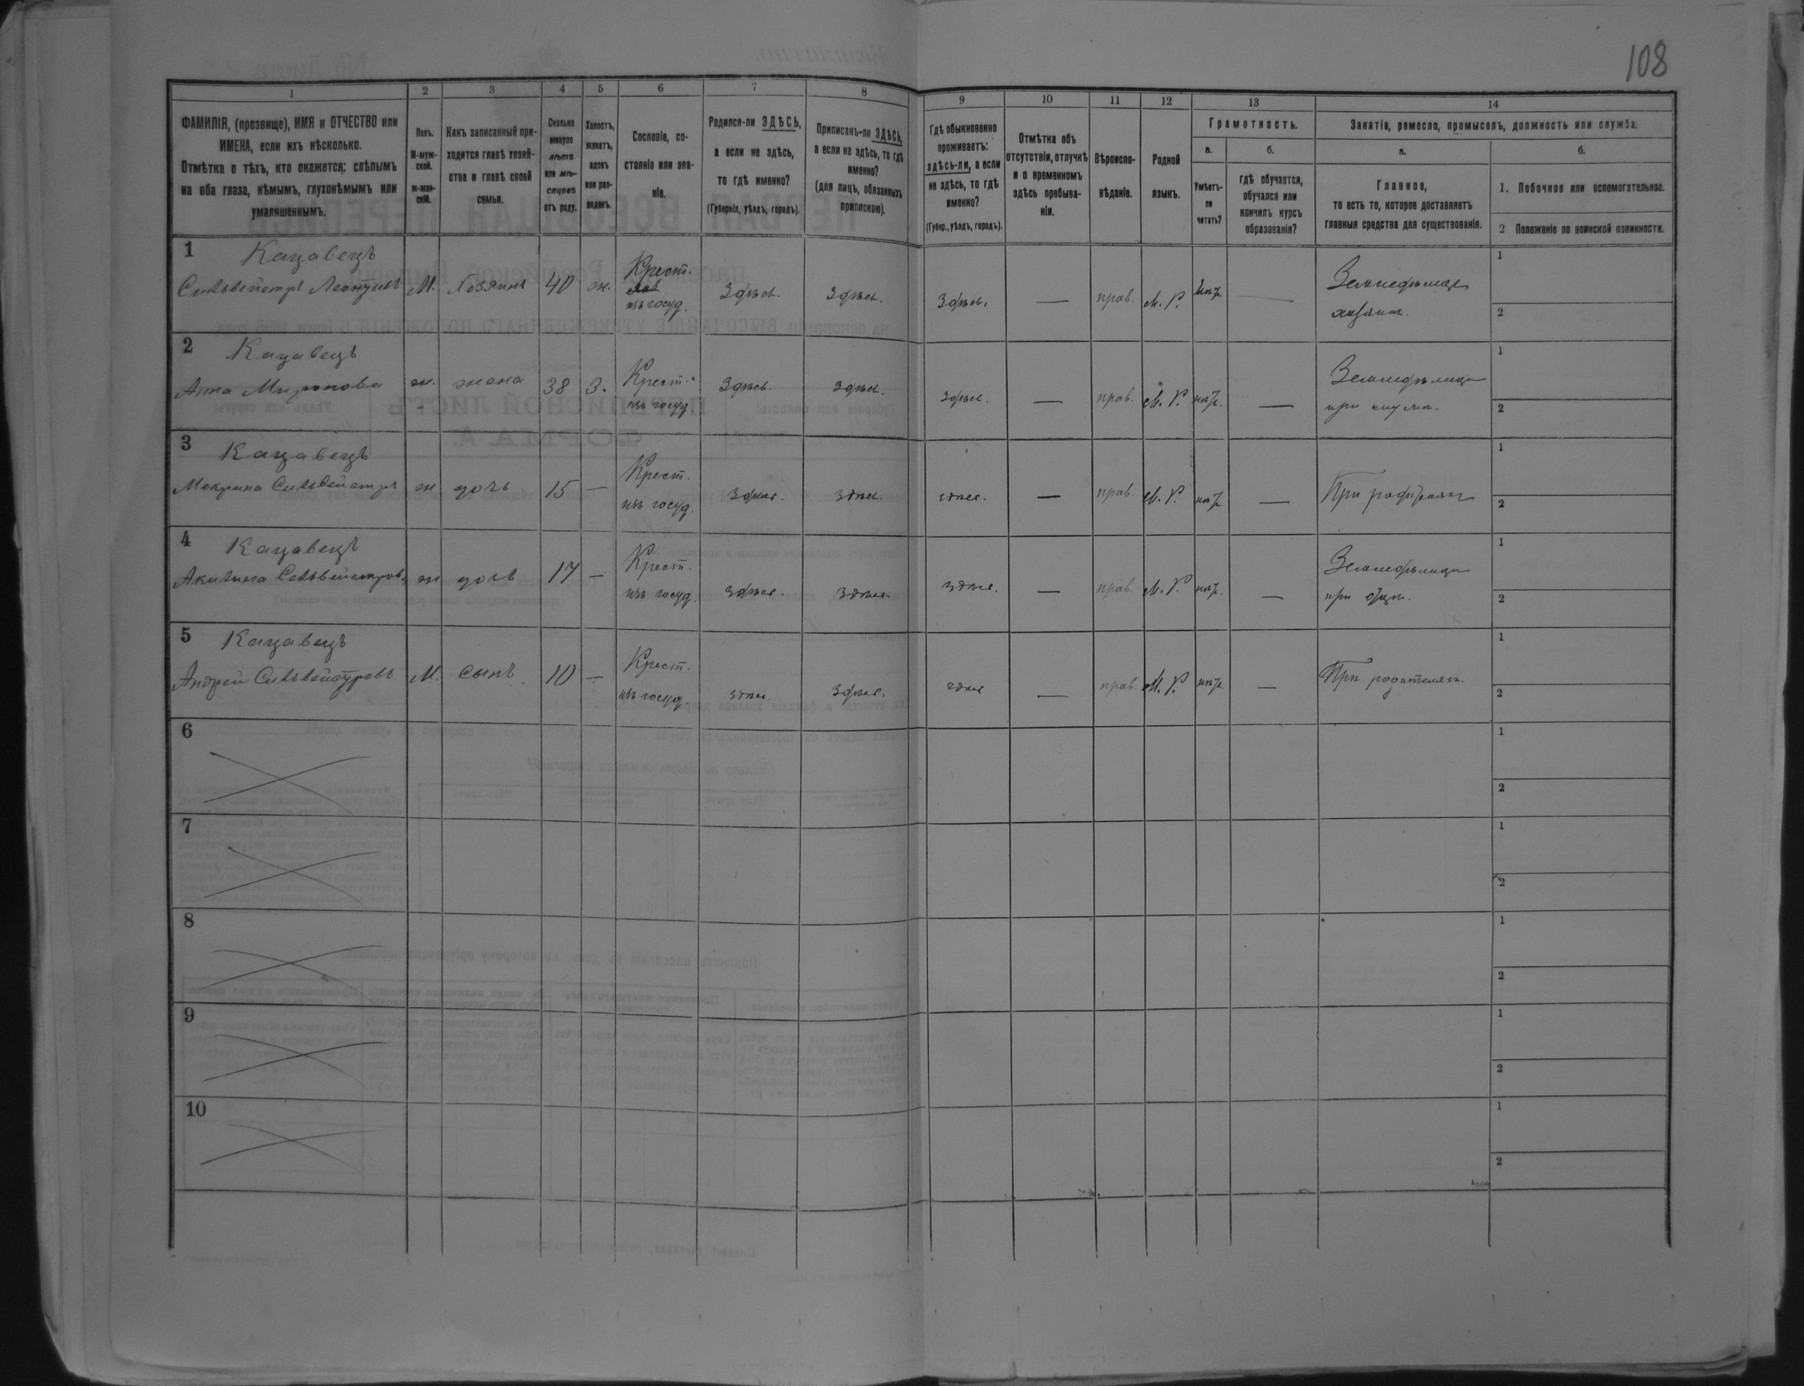 108
1 2 3 4 5 6 7 8 9 10 11 12 13 14
ФАМИЛІЯ, (прозвище), ИМЯ и ОТЧЕСТВО или
ИМЕНА, если ихъ нѣсколько.
Отмѣтка о тѣхъ, кто окажется: слѣпымъ
на оба глаза, нѣмымъ, глухонѣмымъ или
умалишеннымъ.
Полъ.
М-муж-
ской.
ж-жен-
скій.
Какъ записанный при-
ходится главѣ хозяй-
ства и главѣ своей
семьи.
Сколько
минуло
лѣтъ
или мѣ-
сяцевъ
отъ роду.
Холостъ,
женатъ,
вдовъ
или раз-
веденъ.
Сословіе, со-
стояніе или зва-
ніе.
Родился-ли ЗДѢСЬ,
а если не здѣсь,
то гдѣ именно?
(Губернія, уѣздъ, городъ).
Приписанъ-ли ЗДѢСЬ,
а если не здѣсь, то гдѣ
именно?
(для лицъ, обязанныхъ
припискою).
Гдѣ обыкновенно
проживаетъ:
здѣсь-ли, а если
не здѣсь, то гдѣ
именно?
(Губер., уѣздъ, городъ).
Отмѣтка объ
отсутствіи, отлучкѣ
и о временномъ
здѣсь пребыва-
ніи.
Вѣроиспо-
вѣданіе.
Родной
языкъ.
Грамотность.
а.
Умѣетъ-
ли
читать?
б.
гдѣ обучается,
обучался или
кончилъ курсъ
образованія?
Занятіе, ремесло, промыселъ, должность или служба.
а.
Главное,
то есть то, которое доставляетъ
главныя средства для существованія.
б.
1. Побочное или вспомогательное.
2 Положеніе по воинской повинности.
1 Кацавецъ
Сильвестръ Леонтьевъ М. Хозяинъ 40 ж. Крест.
изъ госуд. Здѣсь. Здѣсь. Здѣсь. — прав. М. Р. нѣт — Земледѣлецъ
хозяин. 1 2
2 Кацавецъ
Анна Миронова ж. жена 38 З. Крест.
изъ госуд Здѣсь. Здѣсь. Здѣсь. — прав. М. Р. нѣт. — Земледѣлица
при мужѣ. 1 2
3 Кацавецъ
Макрина Сильвейстр ж дочь 15 — Крест.
изъ госуд. Здѣсь. Здѣсь. здѣсь. — прав. М. Р. нѣт — При родителях 1 2
4 Кацавецъ
Акилина Сильвейстров. ж дочь 17 — Крест.
изъ госуд. здѣсь. здѣсь. здѣсь. — прав. М. Р. нѣт. — Земледѣлица
при отцѣ. 1 2
5 Кацавецъ
Андрей Сильвейстровъ М. сынъ 10 — Крест.
изъ госуд. здѣсь. Здѣсь. здѣсь — прав. М. Р. нѣт — При родителях. 1 2
6 1 2
7 1 2
8 1 2
9 1 2
10 1 2